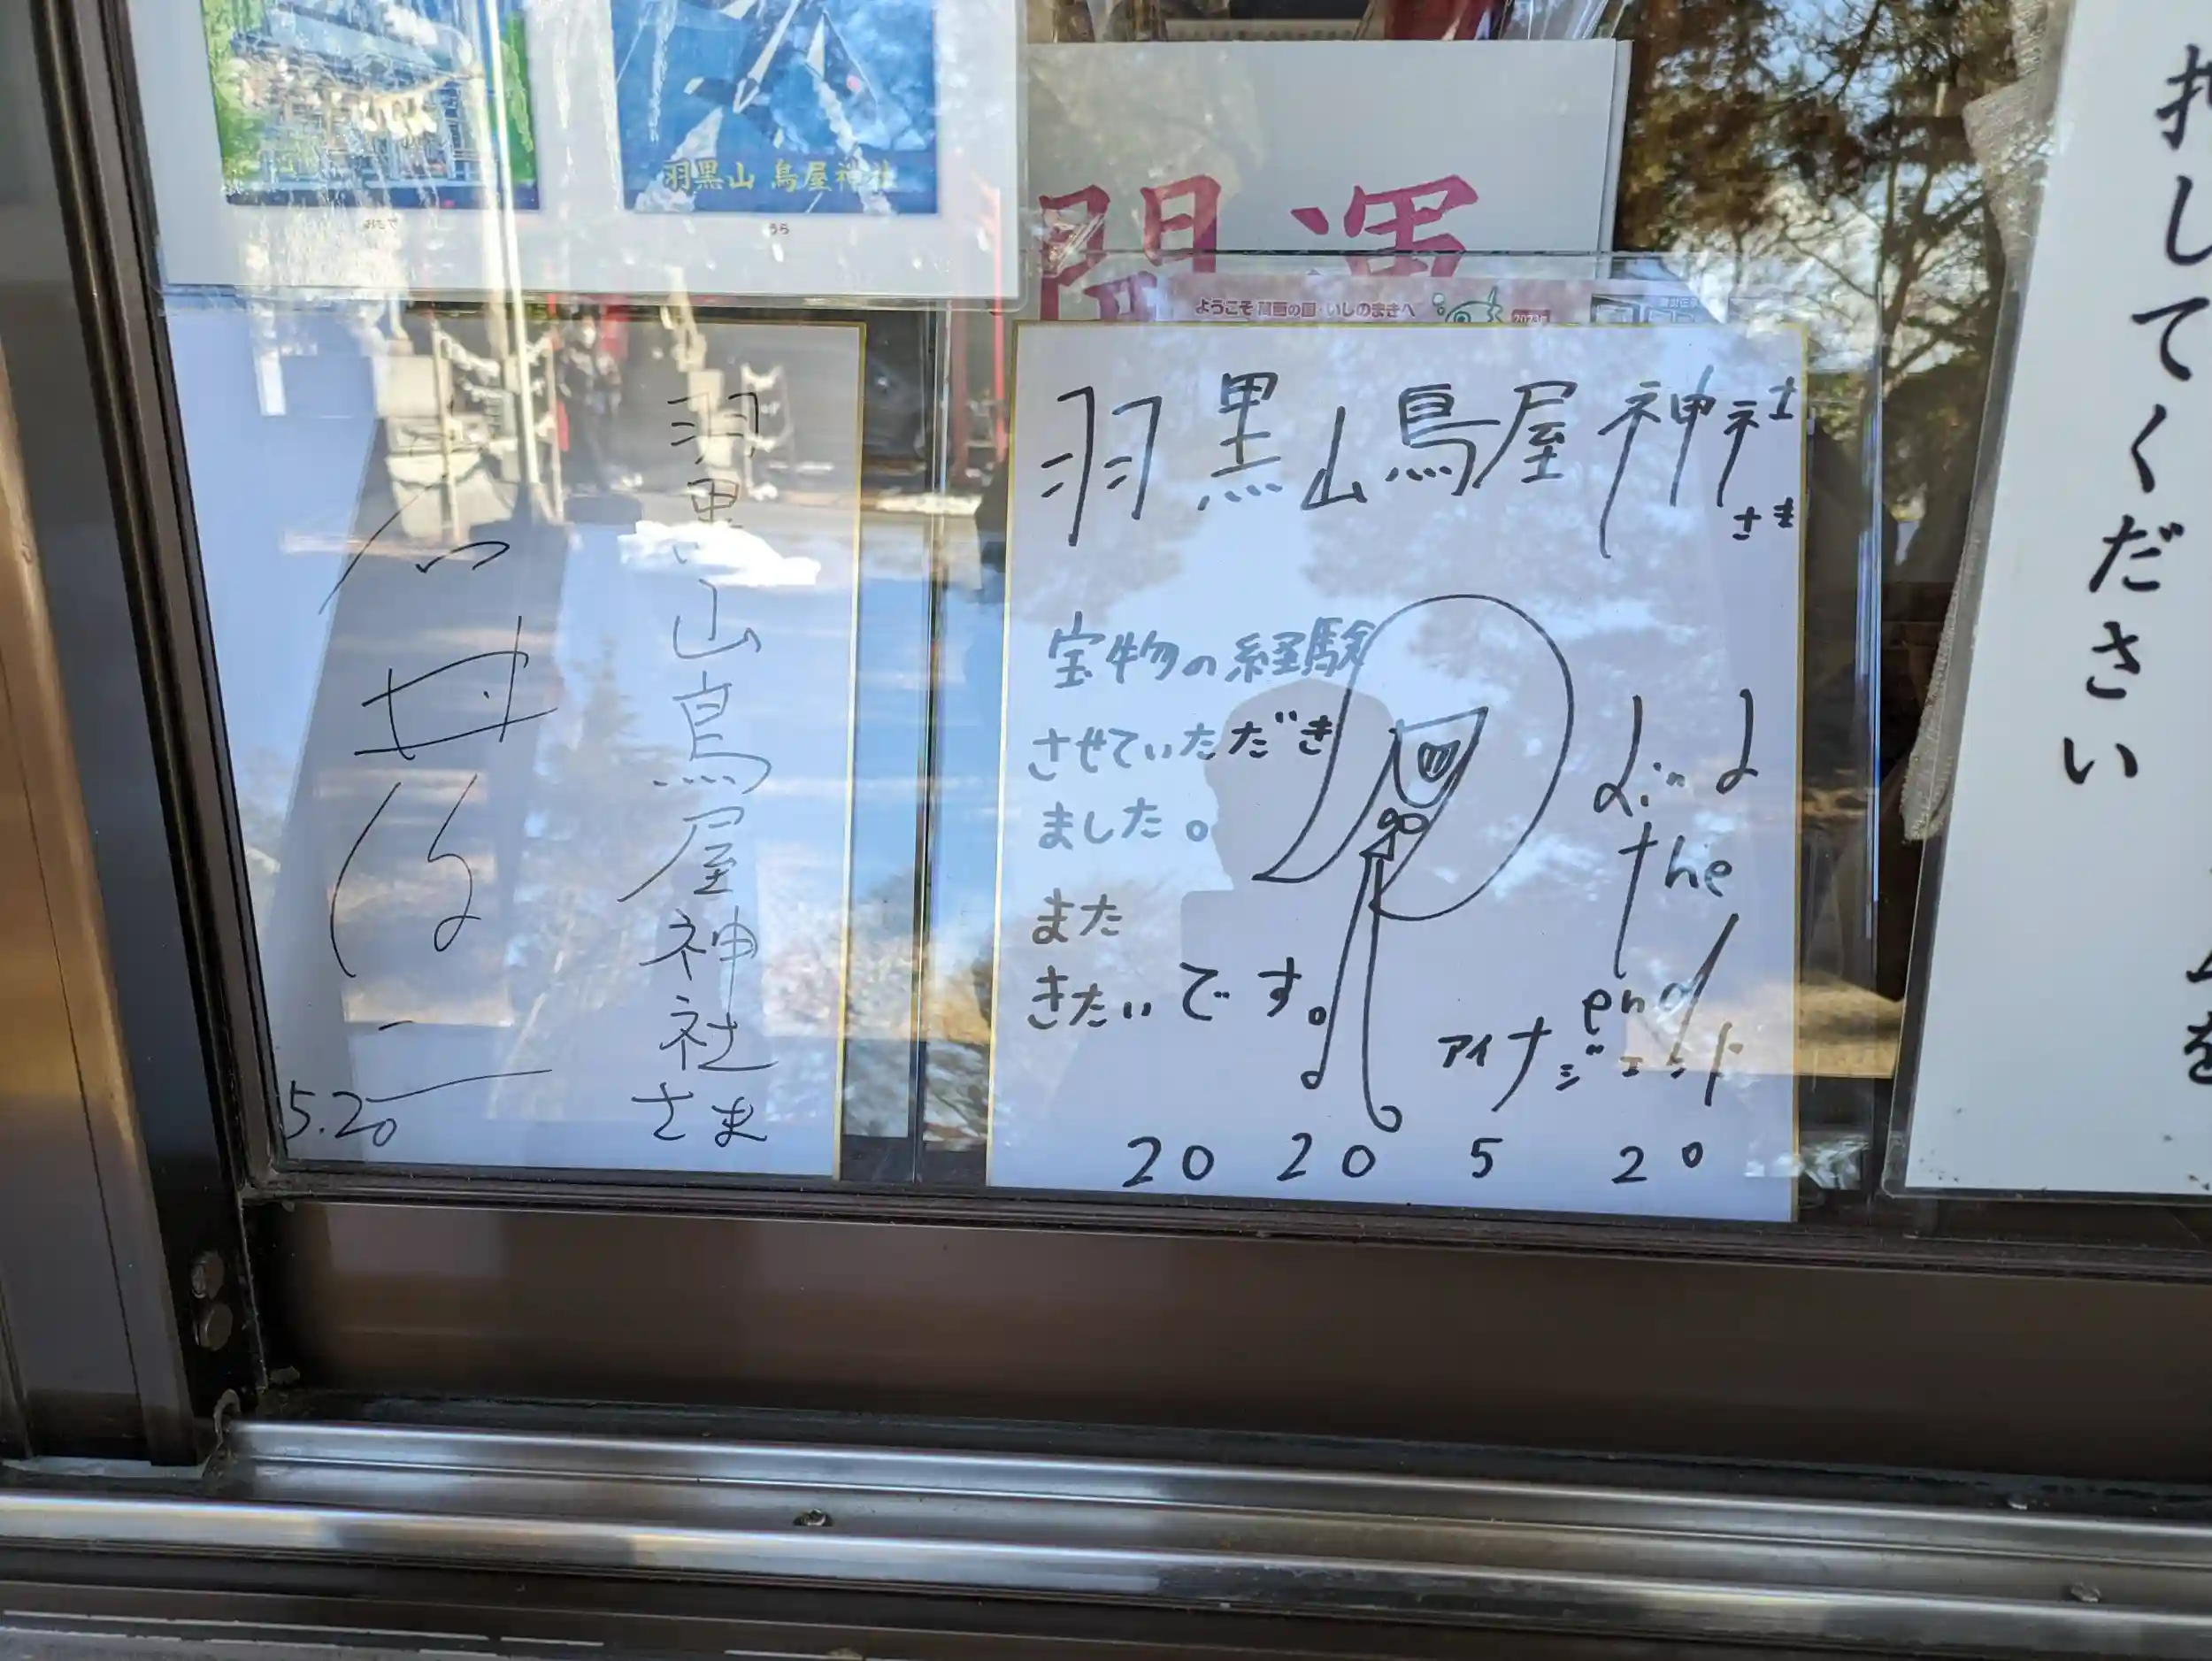 羽黒山 鳥屋神社
うら
開運
ようこそ 萬画の国・いしのまきへ
2023年
羽黒山鳥屋神社さま
5.20
羽黒山鳥屋神社さま
宝物の経験
させていただき
ました。
また
きたいです。
the
end
アイナジエンド
20 20 5 20
押してください
を